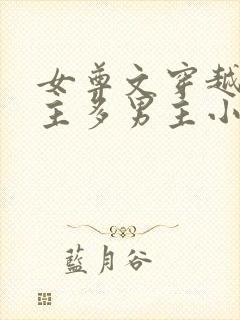 女尊文穿越
主多男主小
藍月谷